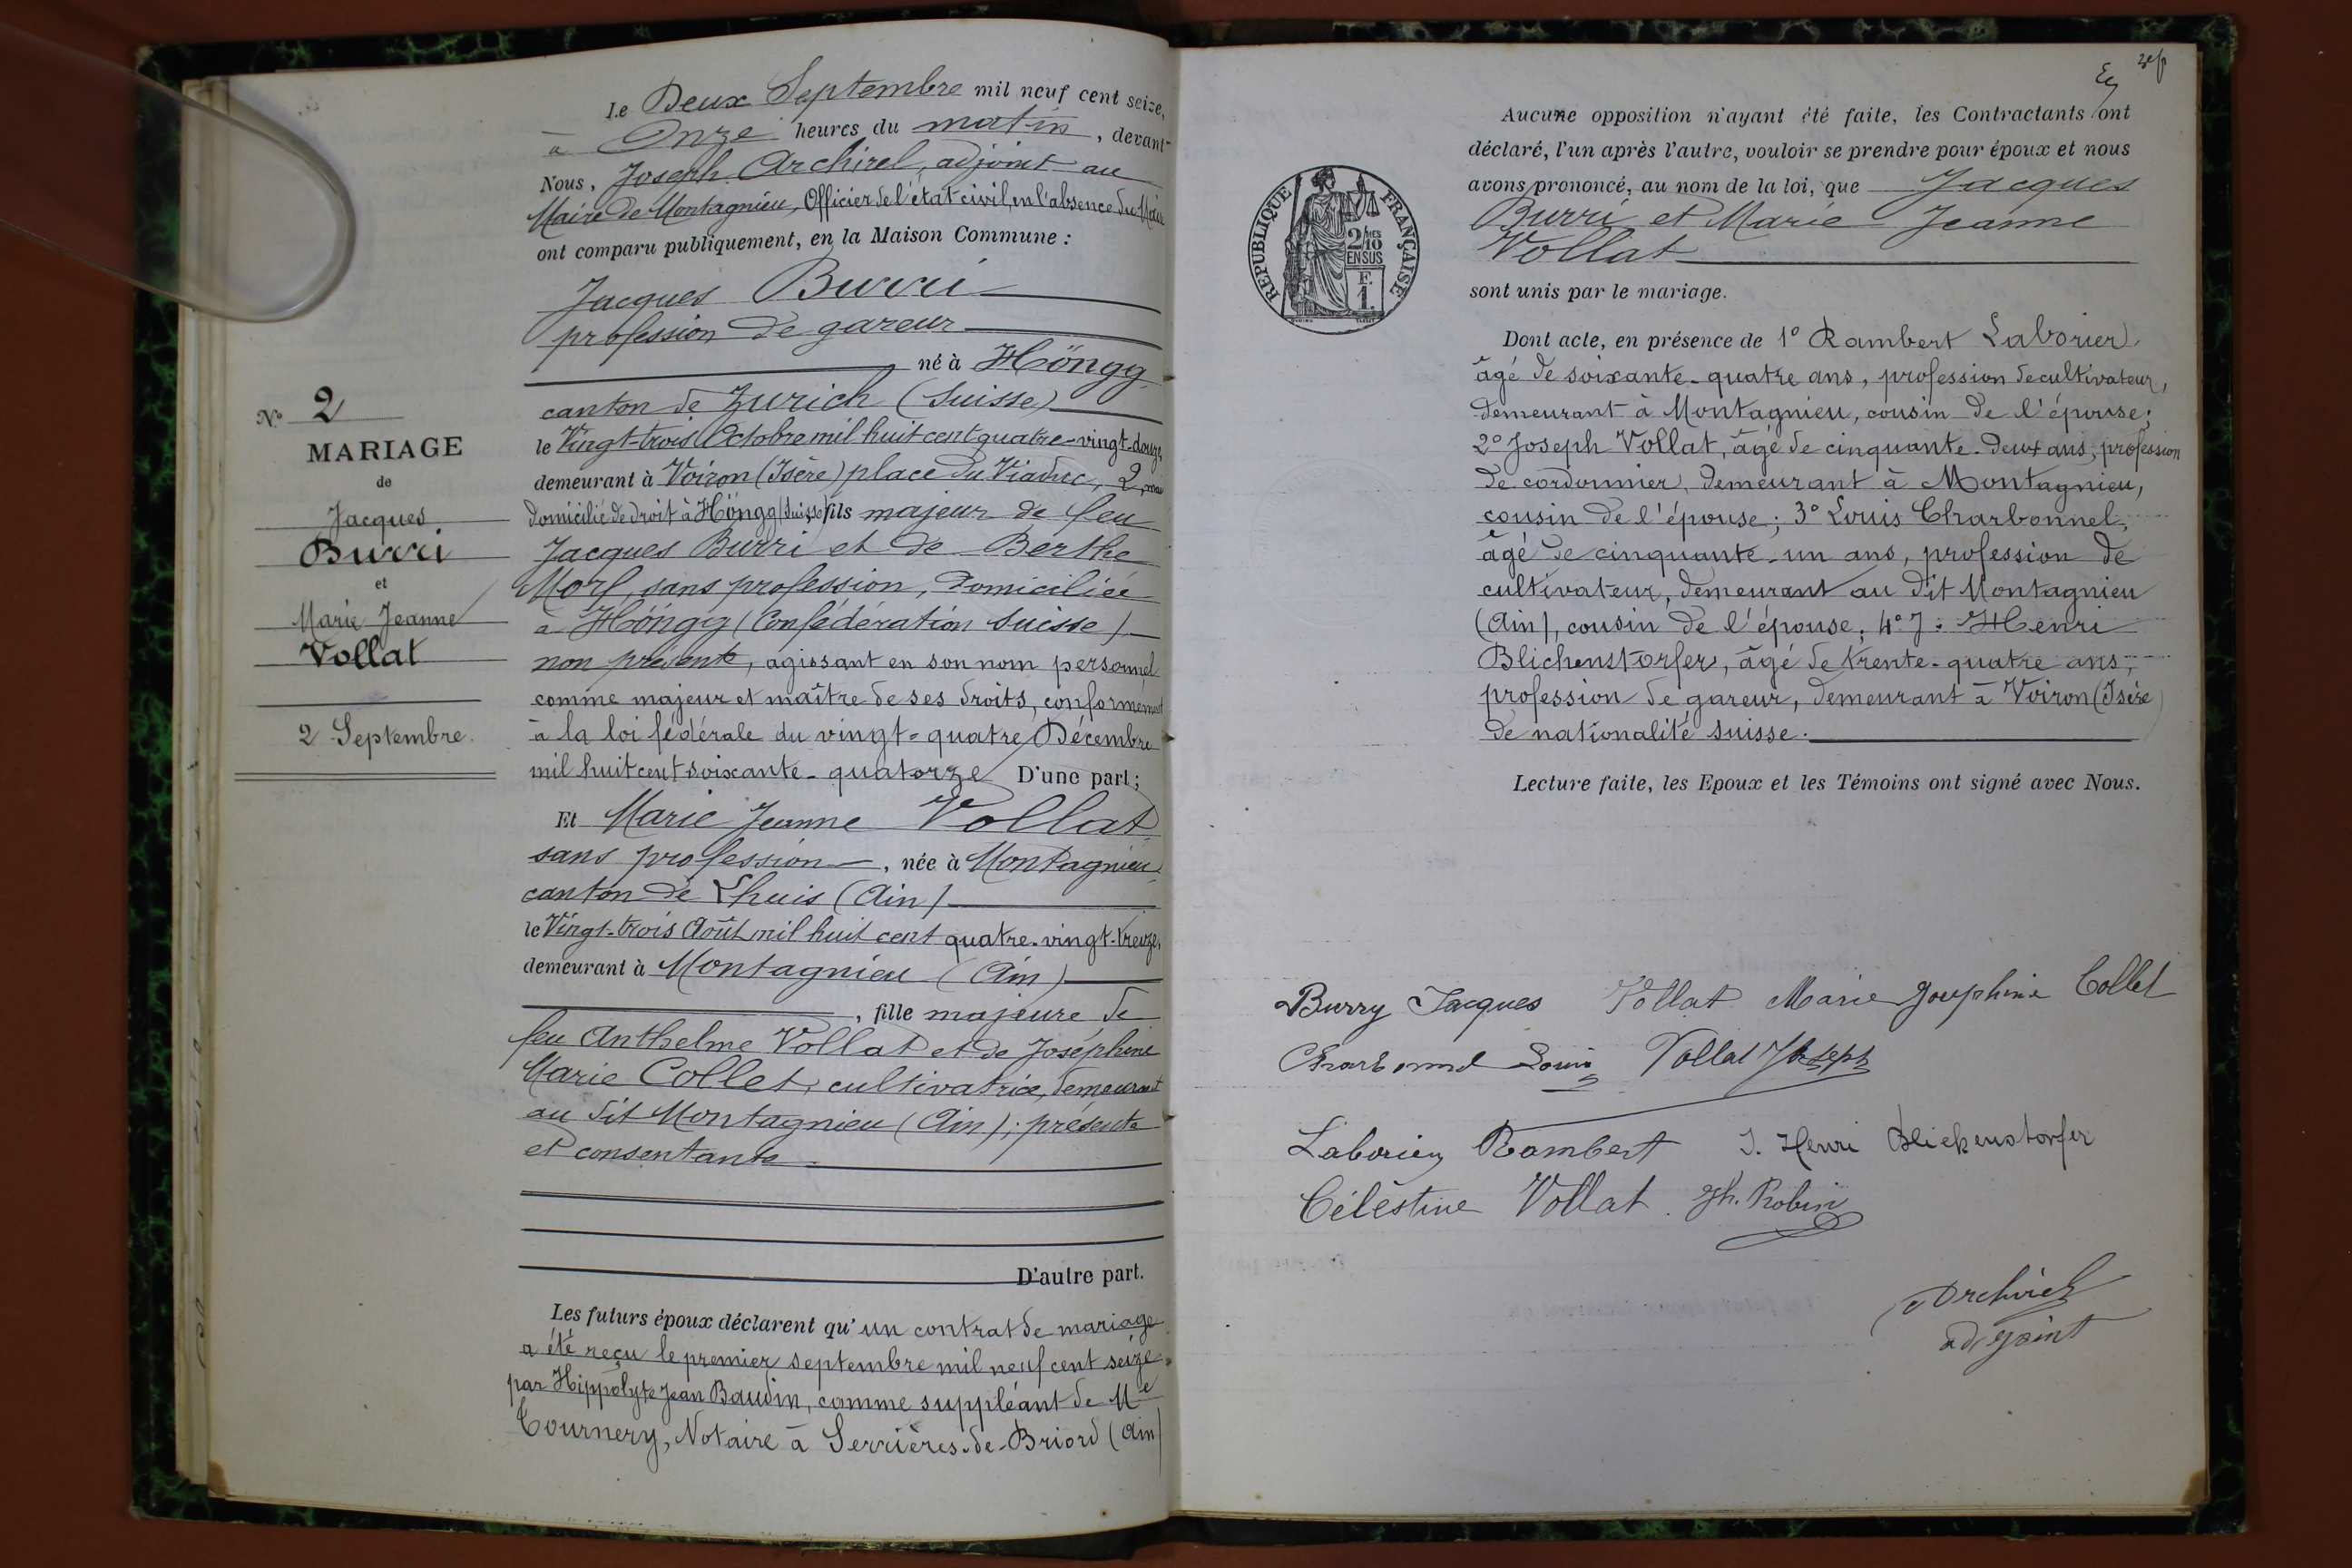 Le Deux Septembre mil neuf cent seize,
à Onze heures du matin, devant
Nous, Joseph Archirel, adjoint au
Maire de Montagnieu, Officier de l'état civil, en l'absence du Maire
ont comparu publiquement, en la Maison Commune :
Jacques Burri
profession de gareur
né à Höngg
canton de Zurich (Suisse)
le Vingt-trois Octobre mil huit cent quatre-vingt-douze,
demeurant à Voiron (Isère) place du Viaduc, 2, mais
domicilié de droit à Höngg (Suisse) fils majeur de feu
Jacques Burri et de Berthe
Morf, sans profession, domiciliée
à Höngg (Confédération Suisse)
non présente, agissant en son nom personnel
comme majeur et maître de ses droits, conformément
à la loi fédérale du vingt-quatre Décembre
mil huit cent soixante-quatorze D'une part;
Et Marie Jeanne Vollat
sans profession, née à Montagnieu,
canton de Lhuis (Ain)
le Vingt-trois Août mil huit cent quatre-vingt-treize,
demeurant à Montagnieu (Ain)
, fille majeure de
feu Anthelme Vollat et de Joséphine
Marie Collet, cultivatrice, demeurant
au dit Montagnieu (Ain); présente
et consentante.
D'autre part.
Les futurs époux déclarent qu'un contrat de mariage
a été reçu le premier septembre mil neuf cent seize
par Hippolyte Jean Baudin, comme suppléant de Me
Tournery, Notaire à Serrières-de-Briord (Ain)
No 2
MARIAGE
de
Jacques
Burri
et
Marie Jeanne
Vollat
2 Septembre.
REPUBLIQUE FRANÇAISE
2/10 EN SUS
F.
1.
Aucune opposition n'ayant été faite, les Contractants ont
déclaré, l'un après l'autre, vouloir se prendre pour époux et nous
avons prononcé, au nom de la loi, que Jacques
Burri et Marie Jeanne
Vollat
sont unis par le mariage.
Dont acte, en présence de 1° Rambert Laborier,
âgé de soixante-quatre ans, profession de cultivateur,
demeurant à Montagnieu, cousin de l'épouse;
2° Joseph Vollat, âgé de cinquante-deux ans, profession
de cordonnier, demeurant à Montagnieu,
cousin de l'épouse; 3° Louis Charbonnel,
âgé de cinquante-un ans, profession de
cultivateur, demeurant au dit Montagnieu
(Ain), cousin de l'épouse; 4° J. Henri
Blichenstorfer, âgé de trente-quatre ans,
profession de gareur, demeurant à Voiron (Isère)
de nationalité suisse.
Lecture faite, les Epoux et les Témoins ont signé avec Nous.
Burry Jacques Vollat Marie Josephine Collet
Charbonnel Louis Vollat Joseph
Laborier Rambert J. Henri Blickenstorfer
Célèstine Vollat. Jh. Robin
Archirel
adjoint